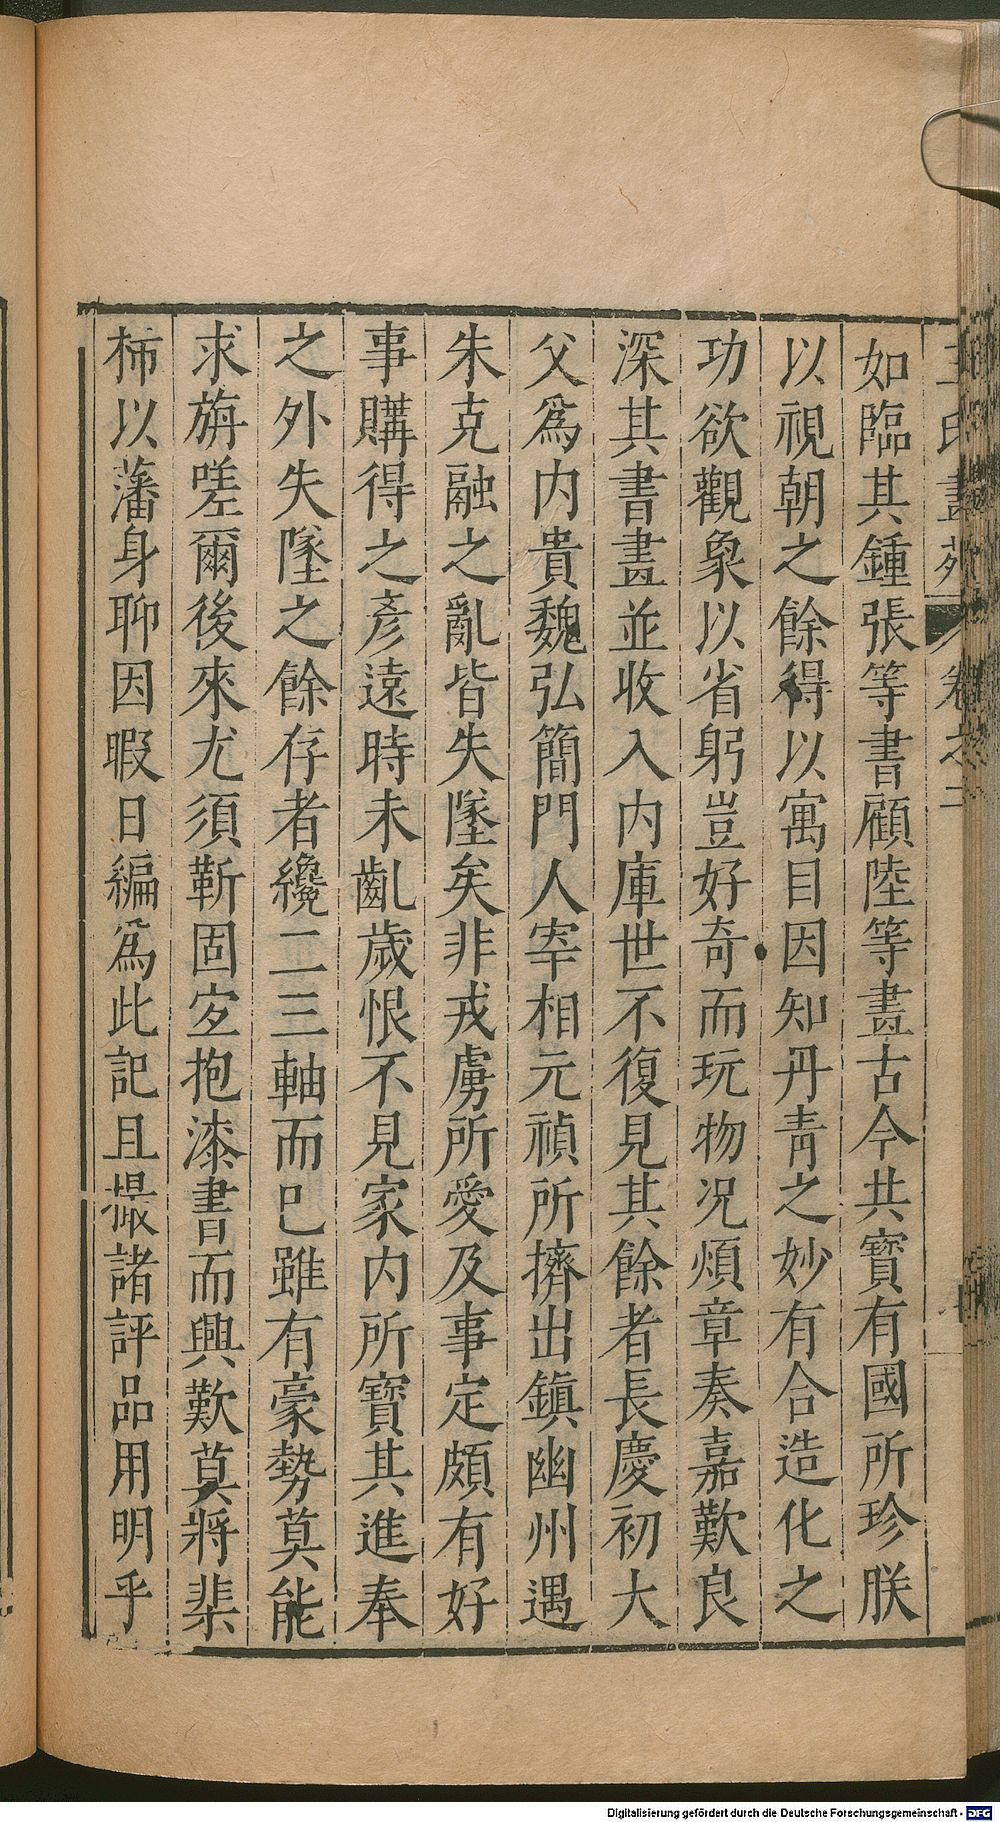 王氏畫苑 卷之二
如臨其鍾張等書顧陸等畫古今共寶有國所珍朕
以視朝之餘得以寓目因知丹青之妙有合造化之
功欲觀象以省躬豈好奇而玩物况煩章奏嘉歎良
深其書畫並收入内庫世不復見其餘者長慶初大
父爲内貴魏弘簡門人宰相元稹所擠出鎮幽州遇
朱克融之亂皆失墜矣非戎虜所愛及事定頗有好
事購得之彥遠時未齓歲恨不見家内所寶其進奉
之外失墜之餘存者纔二三軸而已雖有豪勢莫能
求旃嗟爾後來尤須靳固宐抱漆書而興歎莫將棐
柿以藩身聊因暇日編爲此記且撮諸評品用明乎
Digitalisierung gefördert durch die Deutsche Forschungsgemeinschaft - DFG